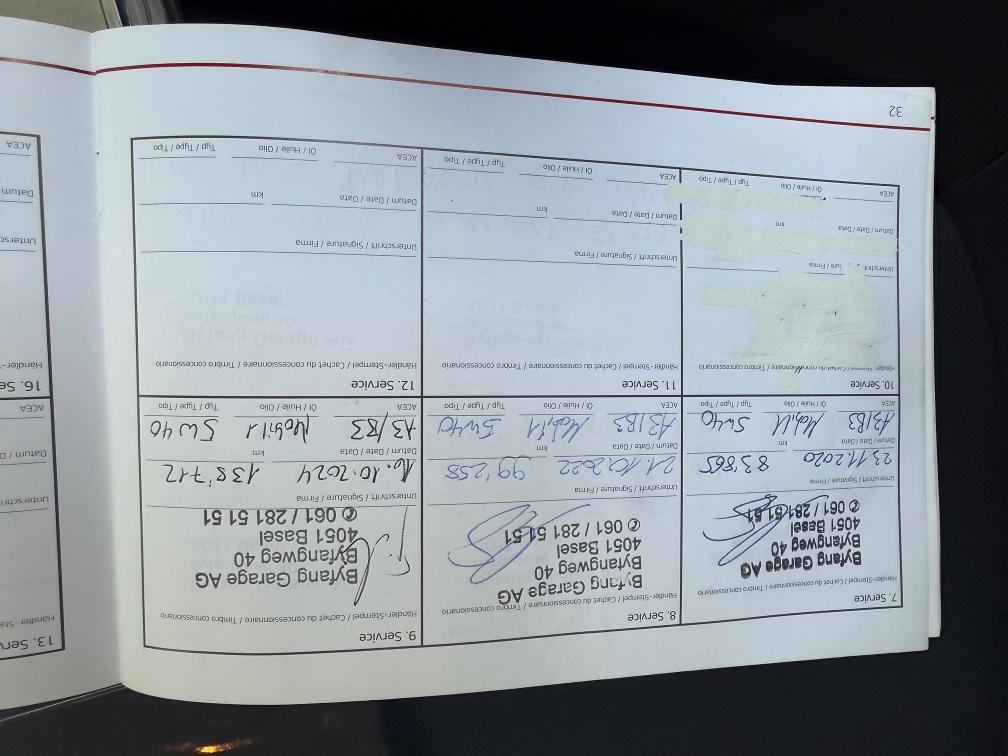 7. Service
Händler-Stempel / Cachet du concessionnaire / Timbro concessionario
Byfang Garage AG
Byfangweg 40
4051 Basel
✆ 061 / 281 51 51
Unterschrift / Signature / Firma
23.11.2020 83'865
Datum / Date / Data km
A3/B3 Mobil1 5W40
ACEA Öl / Huile / Olio Typ / Type / Tipo
8. Service
Händler-Stempel / Cachet du concessionnaire / Timbro concessionario
Byfang Garage AG
Byfangweg 40
4051 Basel
✆ 061 / 281 51 51
Unterschrift / Signature / Firma
21.10.2022 99'258
Datum / Date / Data km
A3/B3 Mobil1 5W40
ACEA Öl / Huile / Olio Typ / Type / Tipo
9. Service
Händler-Stempel / Cachet du concessionnaire / Timbro concessionario
Byfang Garage AG
Byfangweg 40
4051 Basel
✆ 061 / 281 51 51
Unterschrift / Signature / Firma
10.10.2024 138'712
Datum / Date / Data km
A3/B3 Mobil1 5W40
ACEA Öl / Huile / Olio Typ / Type / Tipo
10. Service
Händler-Stempel / Cachet du concessionnaire / Timbro concessionario
Unterschrift / Signature / Firma
Datum / Date / Data km
ACEA Öl / Huile / Olio Typ / Type / Tipo
11. Service
Händler-Stempel / Cachet du concessionnaire / Timbro concessionario
Unterschrift / Signature / Firma
Datum / Date / Data km
ACEA Öl / Huile / Olio Typ / Type / Tipo
12. Service
Händler-Stempel / Cachet du concessionnaire / Timbro concessionario
Unterschrift / Signature / Firma
Datum / Date / Data km
ACEA Öl / Huile / Olio Typ / Type / Tipo
32
13. Serv
Händler-Ste
Unterschri
Datum / D
ACEA
16. Se
Händler-S
Untersc
Datum
ACEA